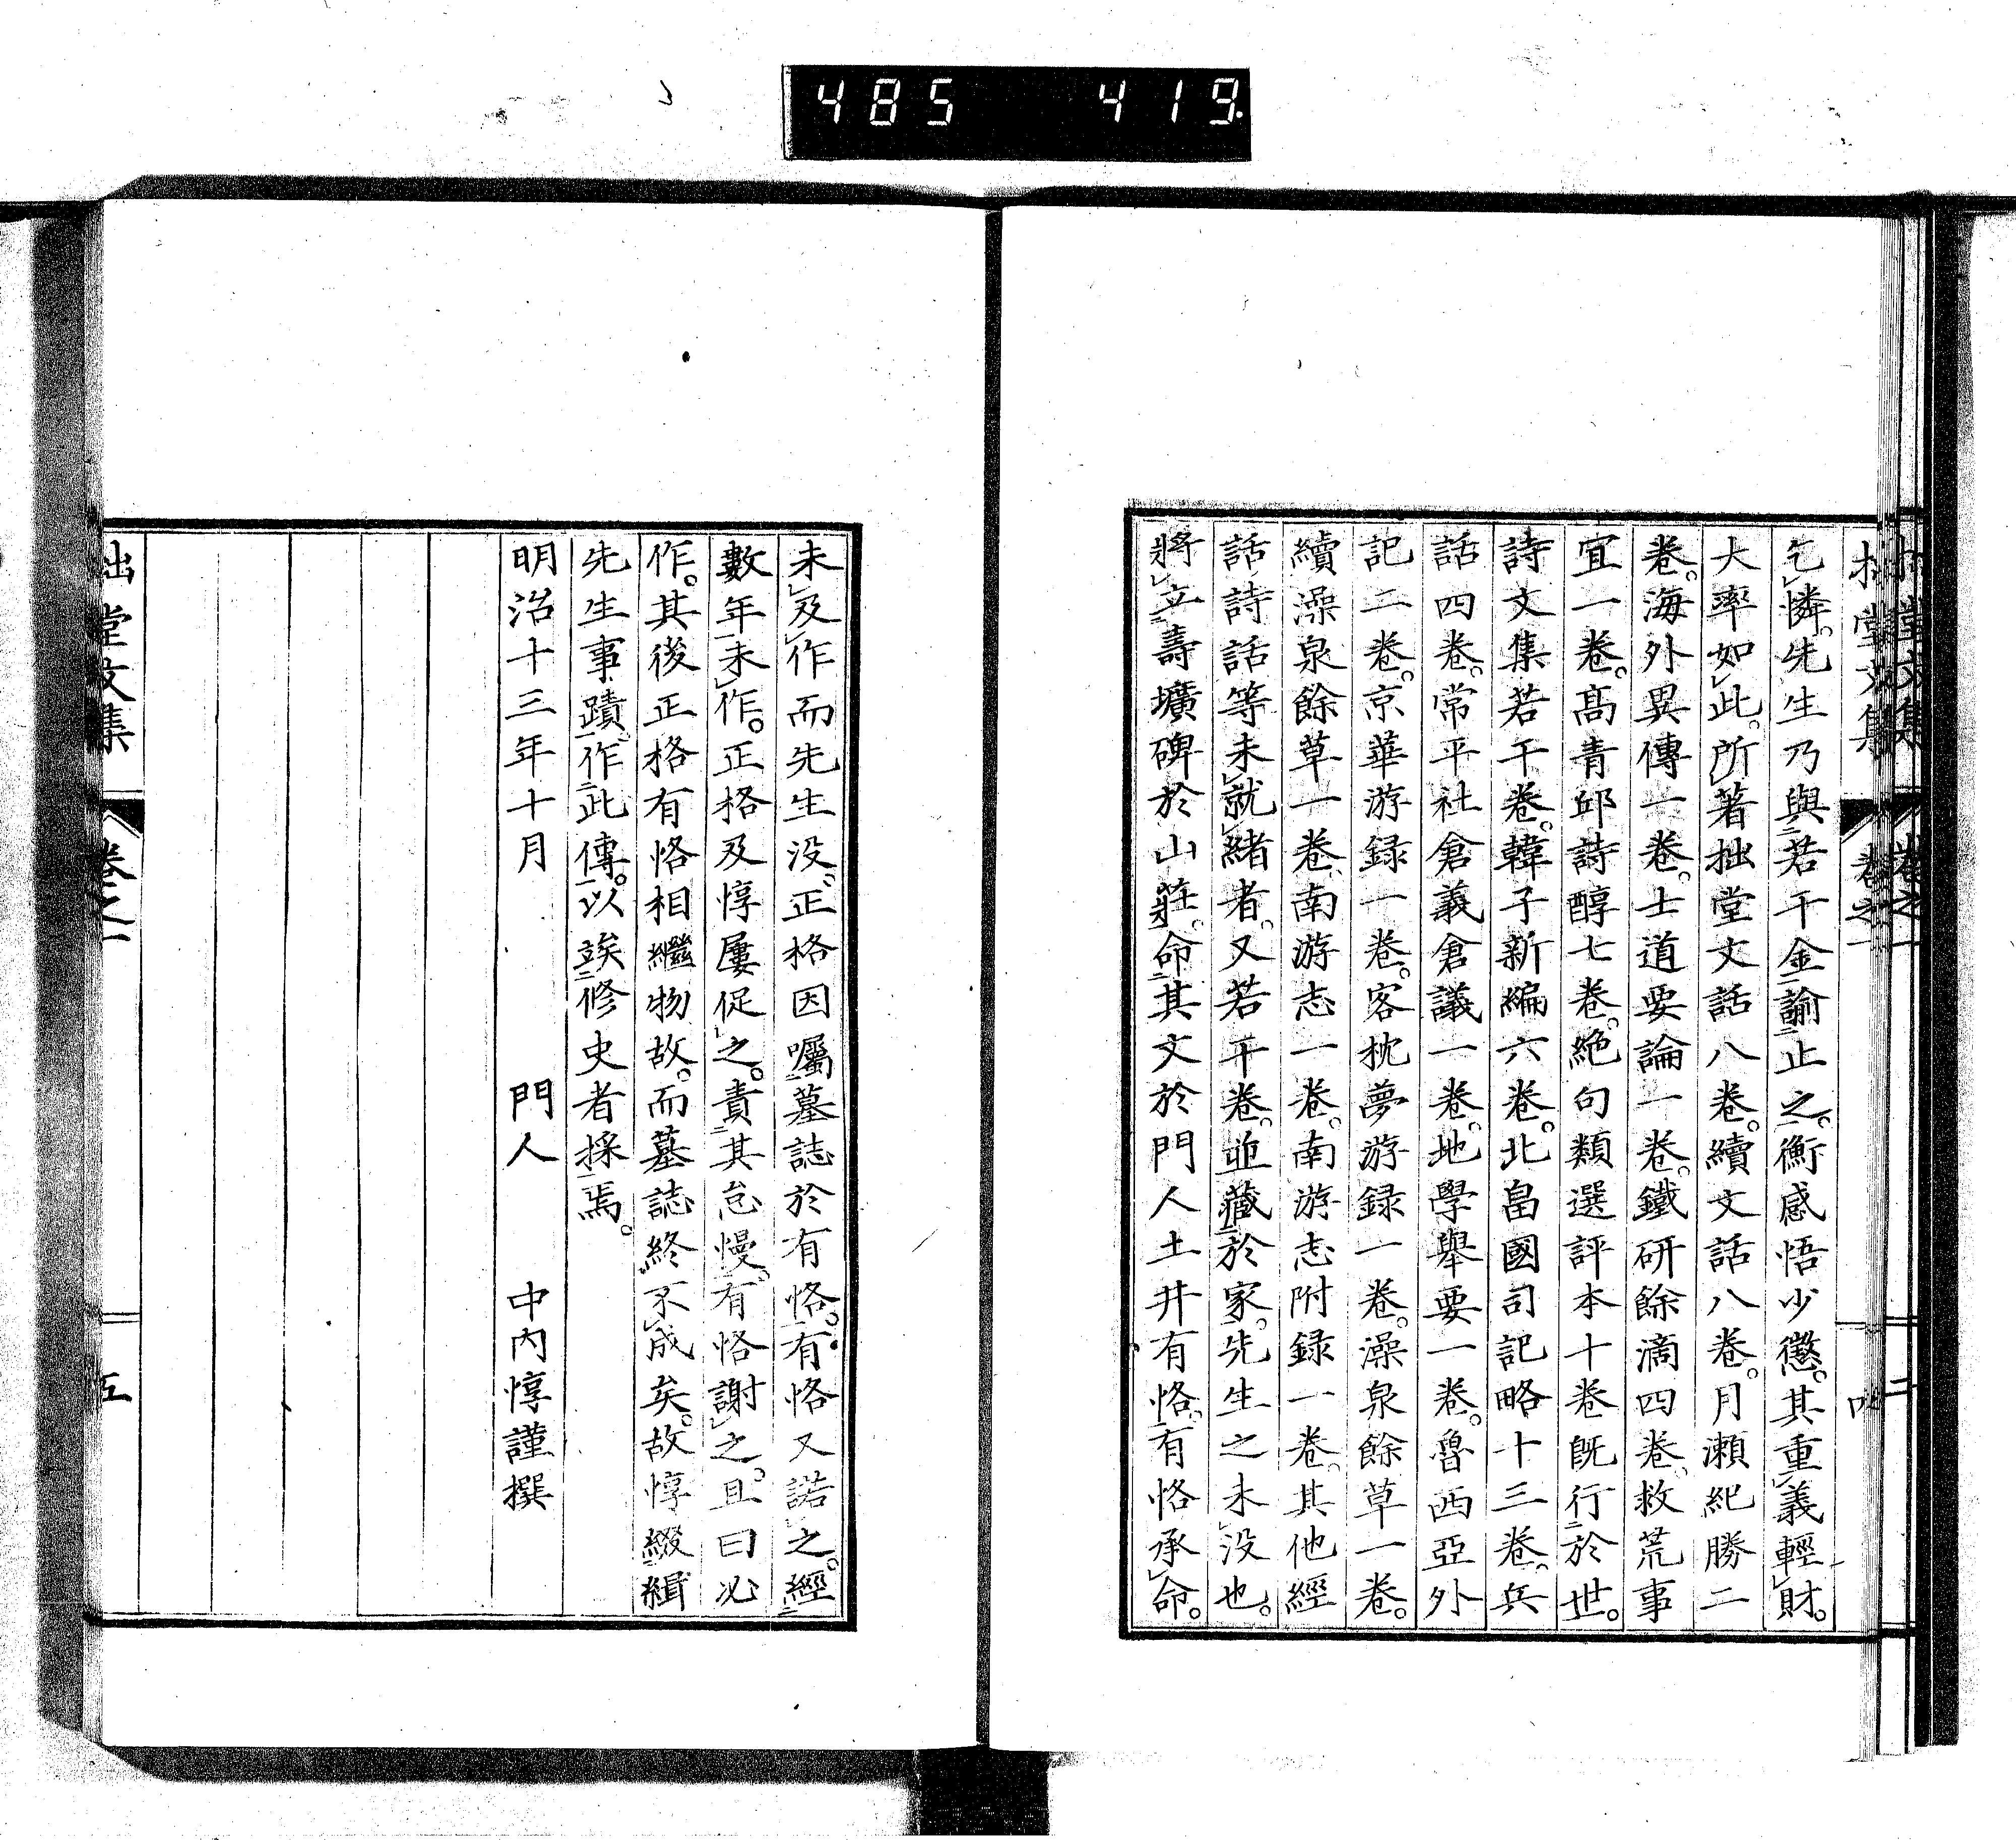 485 419
拙堂文集 卷之一 四
乞憐。先生乃與若干金諭止之。衡感悟少懲。其重義輕財。
大率如此。所著拙堂文話八卷。續文話八卷。月瀨紀勝二
卷。海外異傳一卷。士道要論一卷。鐵研餘滴四卷。救荒事
宜一卷。高青邱詩醇七卷。絶句類選評本十卷既行於世。
詩文集若干卷。韓子新編六卷。北畠國司記略十三卷。兵
話四卷。常平社倉義倉議一卷。地學舉要一卷。魯西亞外
記二卷。京華游録一卷。客枕夢游録一卷。澡泉餘草一卷。
續澡泉餘草一卷。南游志一卷。南游志附録一卷。其他經
話詩話等未就緒者。又若干卷。並藏於家。先生之未没也。
將立壽壙碑於山莊。命其文於門人土井有恪。有恪承命。
未及作而先生没。正格因囑墓誌於有恪。有恪又諾之。經
數年未作。正格及惇屢促之。責其怠慢。有恪謝之。且曰必
作。其後正格有恪相繼物故。而墓誌終不成矣。故惇綴緝
先生事蹟作此傳。以竢修史者採焉。
明治十三年十月 門人 中内惇謹撰
拙堂文集 卷之一 五